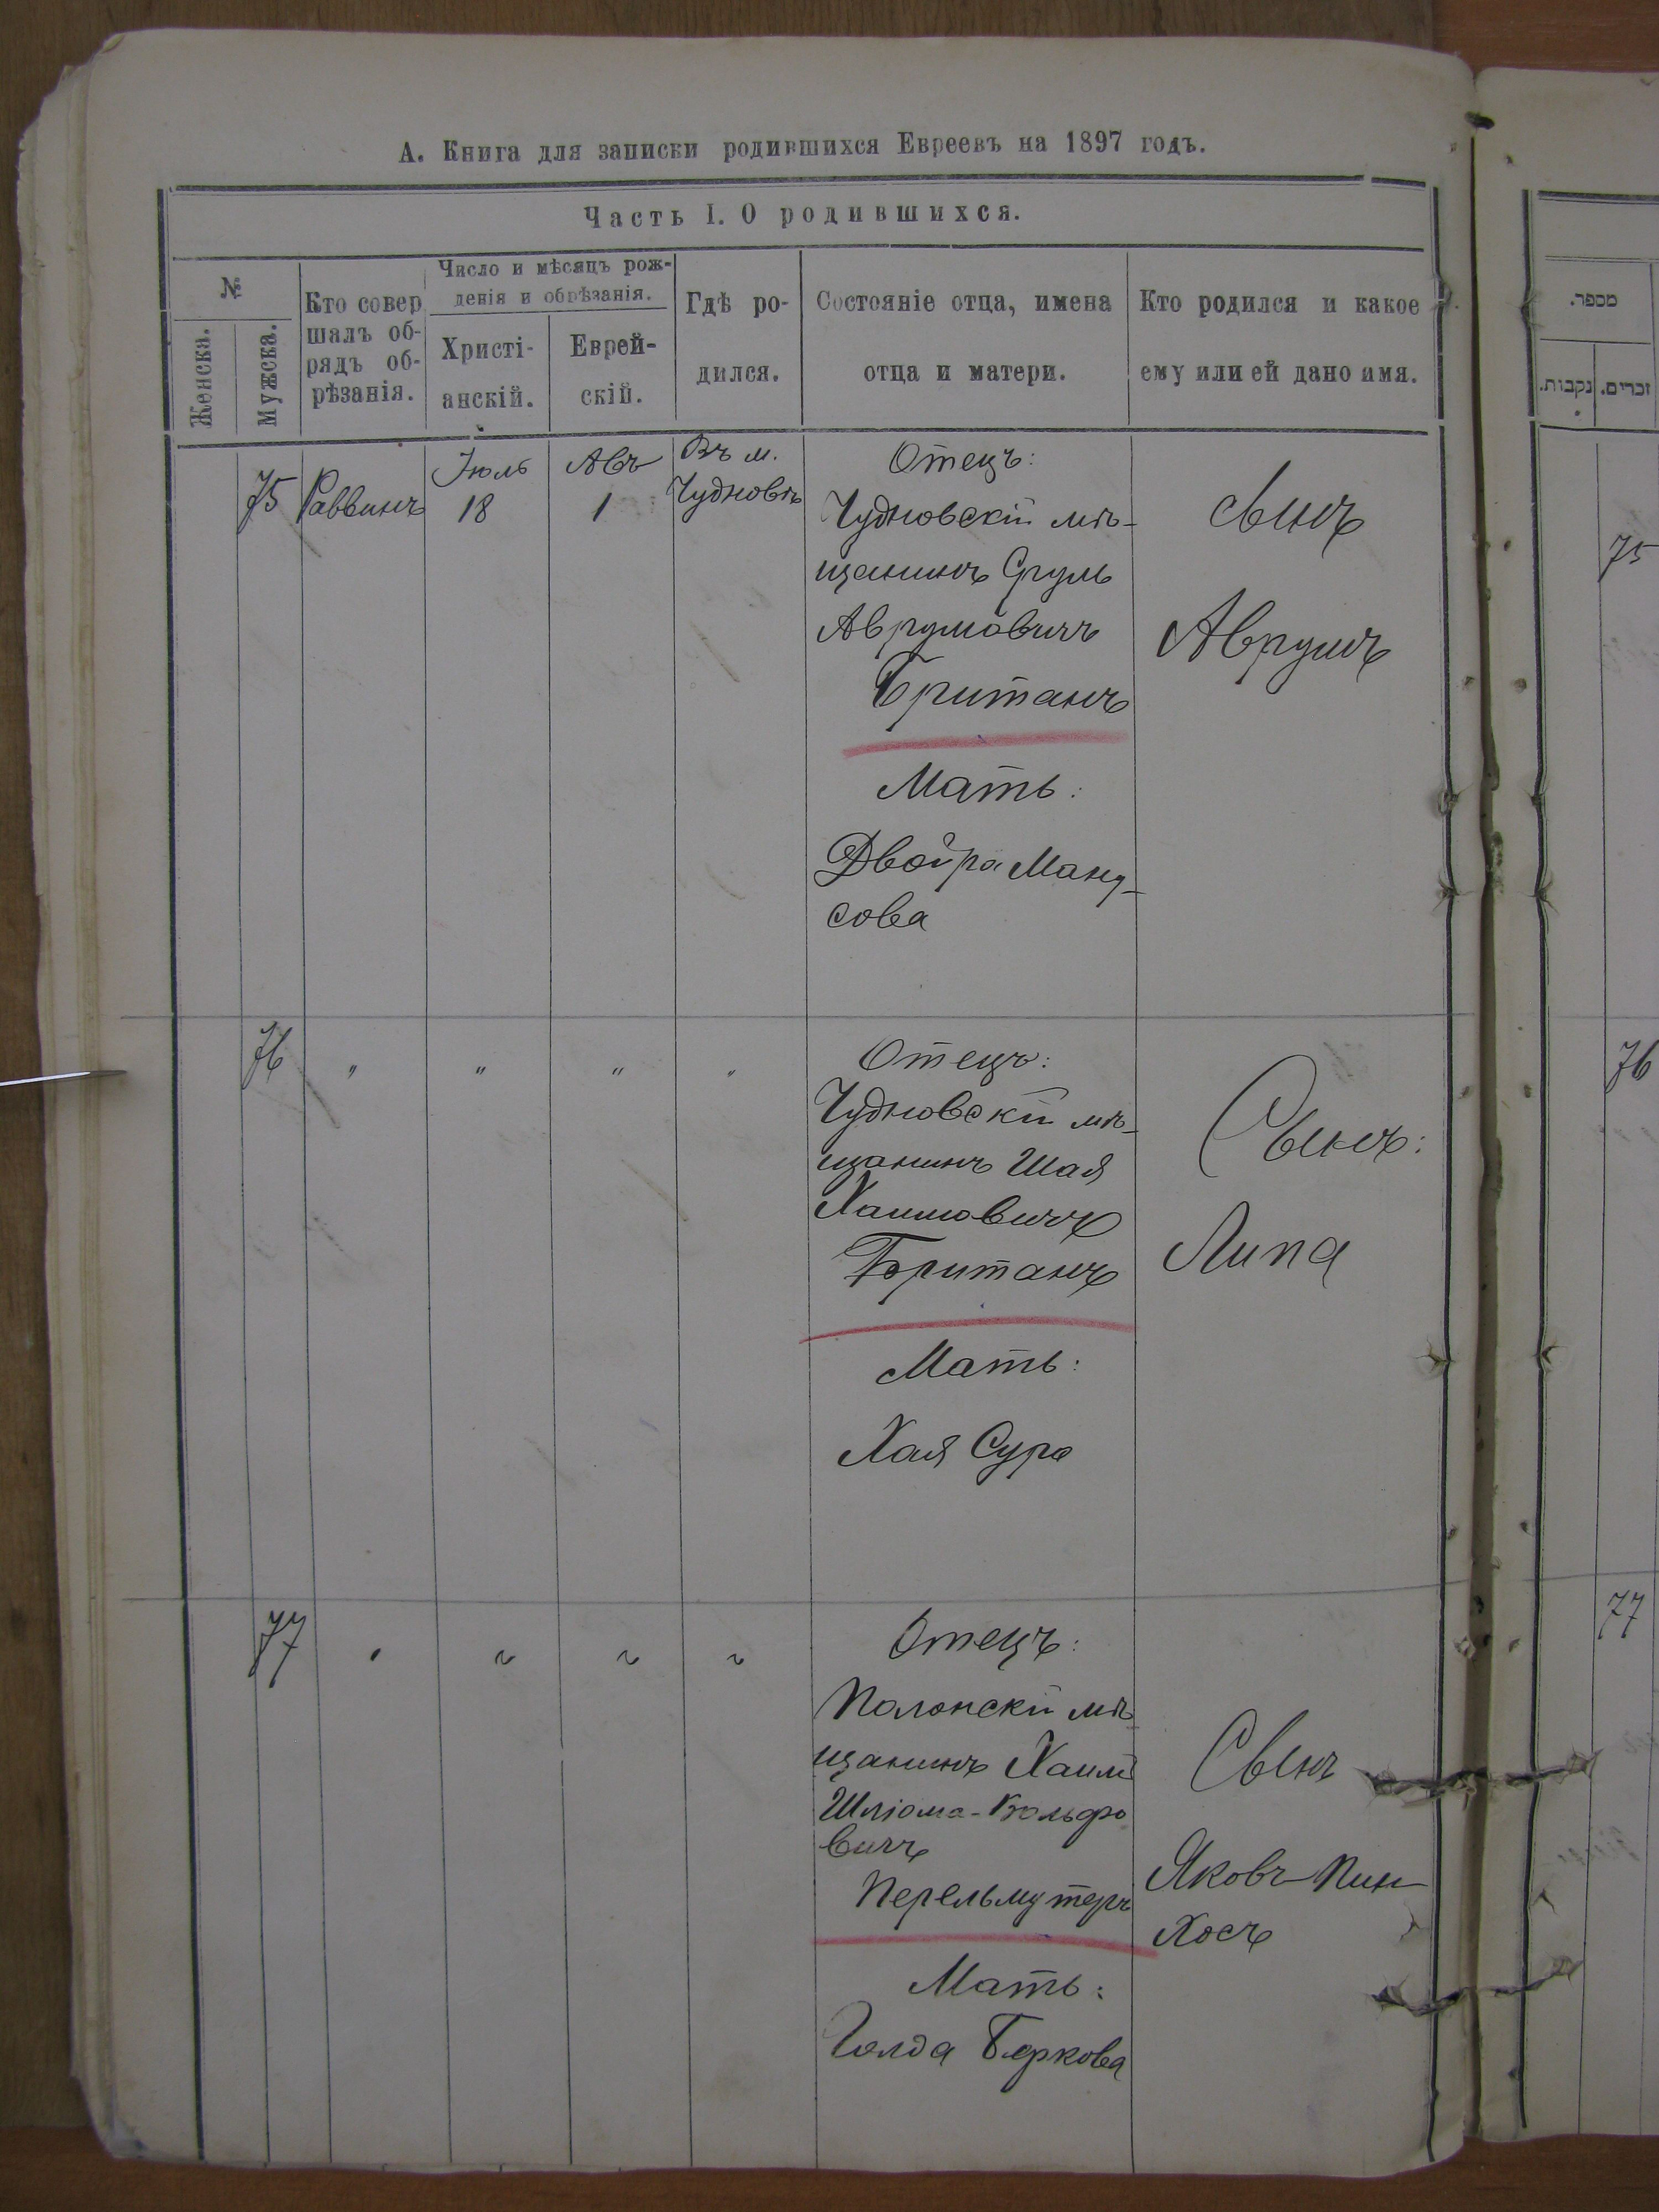 А. Книга для записки родившихся Евреевъ на 1897 годъ.
Часть I. О родившихся.
№
Женска.
Мужска.
Кто совер
шалъ об-
рядъ об-
рѣзанія.
Число и мѣсяцъ рож-
денія и обрѣзанія.
Христі-
анскій.
Еврей-
скій.
Гдѣ ро-
дился.
Состояніе отца, имена
отца и матери.
Кто родился и какое
ему или ей дано имя.
75
Раввинъ
Іюль
18
Авъ
1
Въ м.
Чудновѣ
Отецъ:
Чудновскій мѣ-
щанинъ Сруль
Аврумовичъ
Британъ
Мать:
Двойра Ману-
сова
сынъ
Аврумъ
76
"
"
"
"
Отецъ:
Чудновскій мѣ-
щанинъ Шая
Хаимовичъ
Британъ
Мать:
Хая Сура
Сынъ:
Липа
77
"
"
"
"
Отецъ:
Полонскій мѣ
щанинъ Хаимъ
Шліома-Вольфо
вичъ
Перельмутеръ
Мать:
Голда Беркова
Сынъ
Яковъ-Пин-
хосъ
מספר.
נקבות.
זכרים.
75
76
77